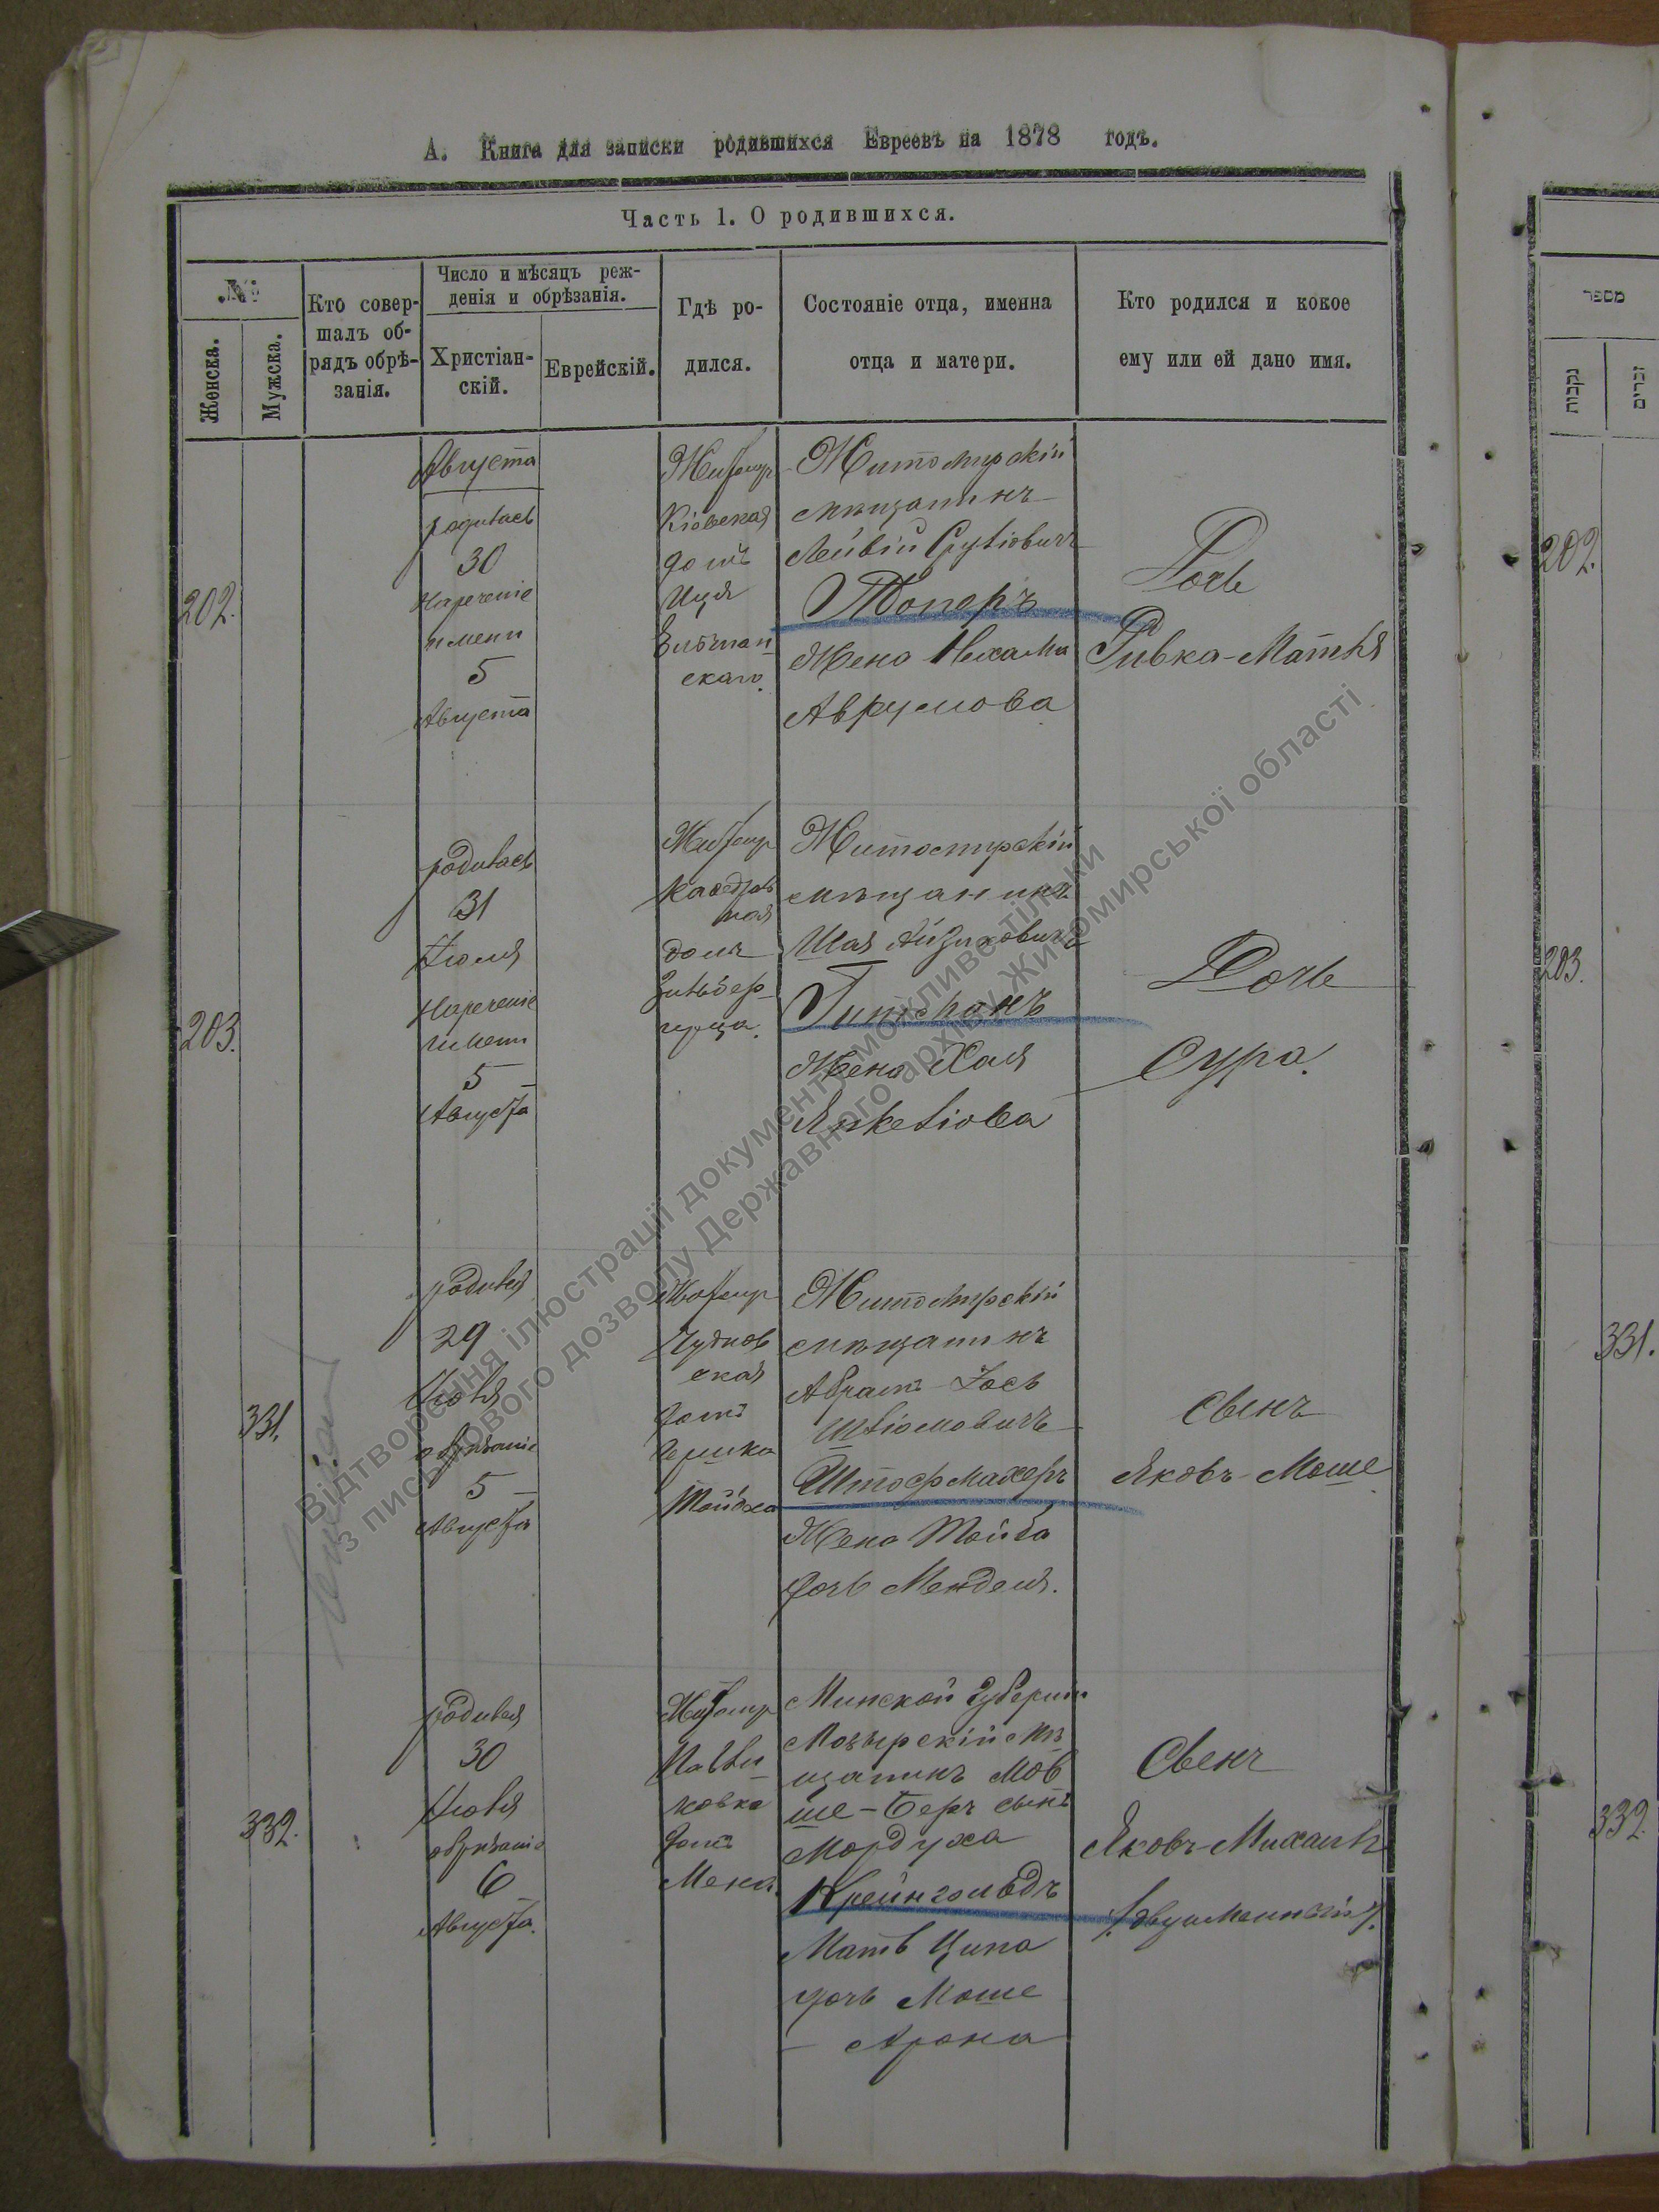 А. Книга для записки родившихся Евреевъ на 1878 годъ.
Часть 1. О родившихся.
№
Женска.
Мужска.
Кто совер-
шалъ об-
рядъ обрѣ-
занія.
Число и мѣсяцъ реж-
денія и обрѣзанія.
Христіан-
скій.
Еврейскій.
Гдѣ ро-
дился.
Состояніе отца, именна
отца и матери.
Кто родился и кокое
ему или ей дано имя.
202.
Августа
родилась
30
Нареченіе
имени
5
Августа
Житомир
Кіевская
домъ
Иця
скаго.
Житомирскій
мѣщанинъ
Лейвій Сруліовичъ
Топоръ
Жена Нехама
Аврумова
Дочь
Ривка-Матля
203.
родилась
31
Іюля
Нареченіе
имени
5
Августа
Житомир
Каѳедраль
ная
домъ
Зильбер-
Житомирскій
мѣщанинъ
Шая Айзиковичъ
Жена Хая
Янкеліова
Дочь
Сура.
331.
родился
29
Іюля
обрѣзаніе
5
Августа
Житомир
Чуднов
ская
домъ
Гершка
Житомирскій
мѣщанинъ
Абрамъ-Іось
Шліомовичъ
Штофмахеръ
Жена Тойба
дочь Менделя.
Сынъ
Яковъ-Моше
332.
родился
30
Іюля
обрѣзаніе
6
Августа.
Житомир
новка
домъ
Минской Губерніи
Мозырскій мѣ
щанинъ Мов
ше-Беръ сынъ
Мордуха
Крейнгольдъ
Мать Ципа
дочь Моше
Арона
Сынъ
Яковъ-Михаилъ
/:двуименный:/.
מספר
נקבות
זכרים
202.
203.
331.
332.
Відтворення ілюстрації документу можливе тільки
з письмового дозволу Державного архіву Житомирської області